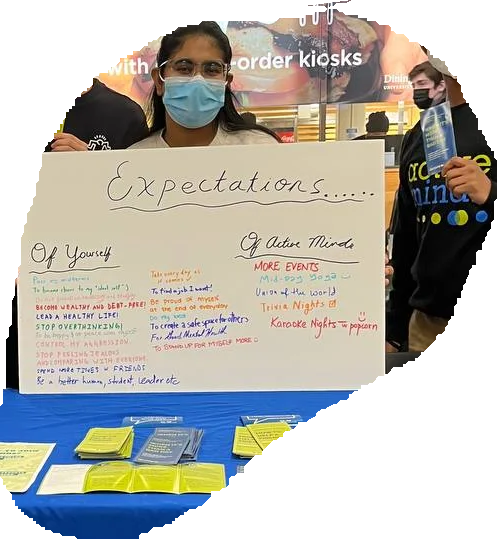 with
-order kiosks
Dining
UNIVERSITY
active
minds
Expectations......
Of Yourself
Pass my midterms
To become closer to my "ideal self"
BECOME WEALTHY AND DEBT-FREE!
LEAD A HEALTHY LIFE!
STOP OVERTHINKING!
CONTROL MY AGGRESSION
STOP FEELING JEALOUS
AND COMPARING WITH EVERYONE
SPEND MORE TIMES W FRIENDS
Be a better human, student, leader etc
Take every day as
it comes
To find a job I want!
Be proud of myself
at the end of everyday
Do my best
To create a safe space for others
For Good Mental Health
TO STAND UP FOR MYSELF MORE
Of Active Minds
MORE EVENTS
Mid-day Yoga
Union of the World
Trivia Nights
Karaoke Nights w popcorn